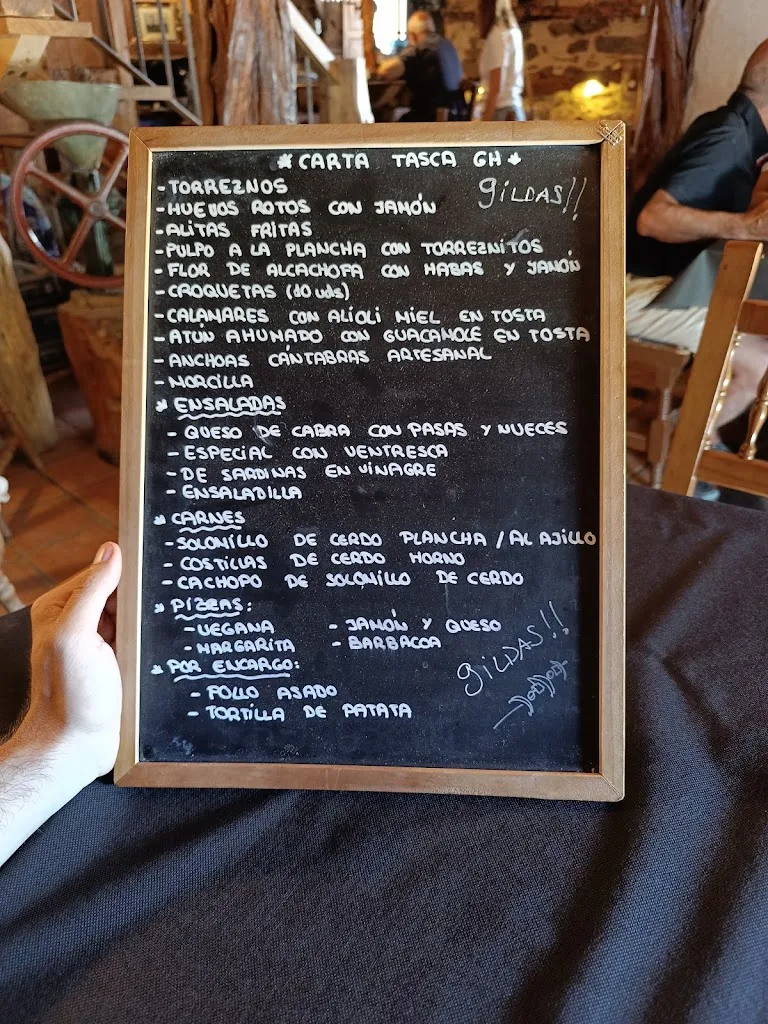 * CARTA TASCA GH *
GILDAS!!
- TORREZNOS
- HUEVOS ROTOS CON JAMÓN
- ALITAS FRITAS
- PULPO A LA PLANCHA CON TORREZNITOS
- FLOR DE ALCACHOFA CON HABAS Y JAMÓN
- CROQUETAS (10 uds)
- CALAMARES CON ALIOLI MIEL EN TOSTA
- ATÚN AHUMADO CON GUACAMOLE EN TOSTA
- ANCHOAS CÁNTABRAS ARTESANAL
- MORCILLA
* ENSALADAS
- QUESO DE CABRA CON PASAS Y NUECES
- ESPECIAL CON VENTRESCA
- DE SARDINAS EN VINAGRE
- ENSALADILLA
* CARNES
- SOLOMILLO DE CERDO PLANCHA / AL AJILLO
- COSTILLAS DE CERDO HORNO
- CACHOPO DE SOLOMILLO DE CERDO
* PIZZAS:
- VEGANA - JAMÓN Y QUESO
- MARGARITA - BARBACOA
* POR ENCARGO:
- POLLO ASADO
- TORTILLA DE PATATA
GILDAS!!